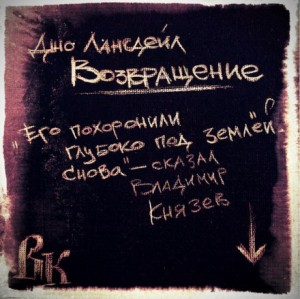 Джо Лансдейл
Возвращение
"Его похоронили
глубоко под землёй.
Снова" – сказал
Владимир
Князев
ВК